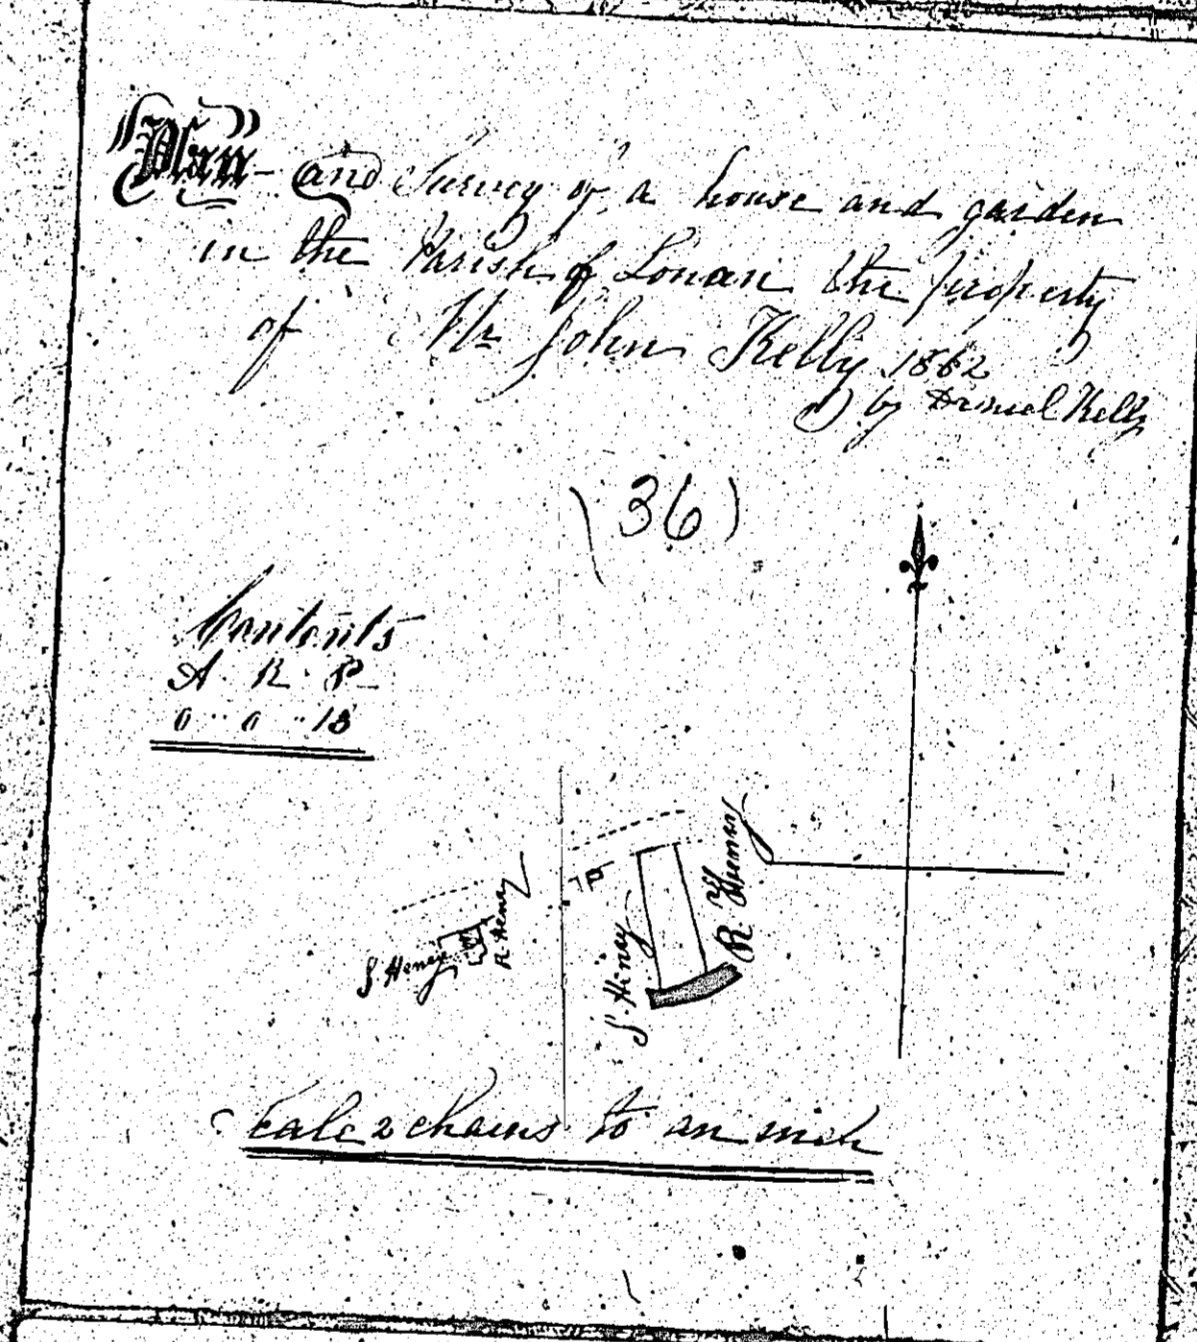 Plan and Survey of a house and garden
in the Parish of Lonan the property
of Mr John Kelly 1862
by Daniel Kelly
(36)
Contents
A. R. P
0 .. 0 .. 13
S. Heney
R Heney
S. Heney
R Heney
Scale 2 chains to an inch